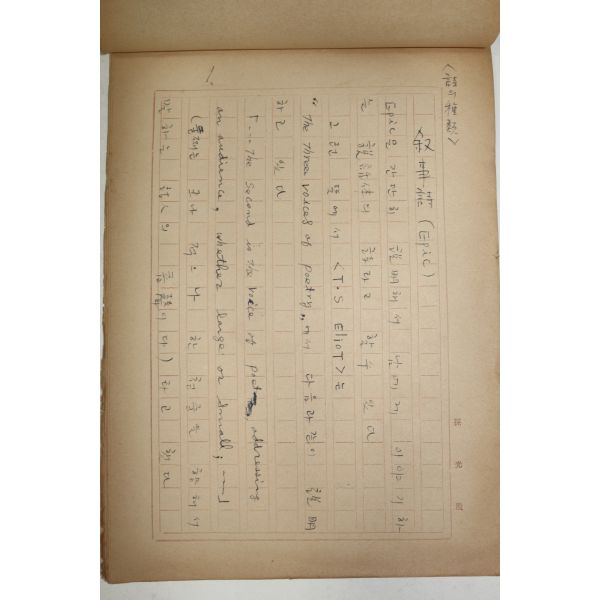 <詩의 種類>
叙事詩 (Epic)
Epic은 간단히 說明해서 남에게 이야기하
는 說話体의 詩라고 할수 있다
그런 뜻에서 <T.S ElioT>는
"The Three voices of poetry"에서 다음과 같이 說明
하고 있다
「… The second is the voice of poet, addressing
an audience, whether large or small; —」
(둘째는 크나 적으나 한 청중을 향해서
말하는 詩人의 음聲이다) 라고 했다